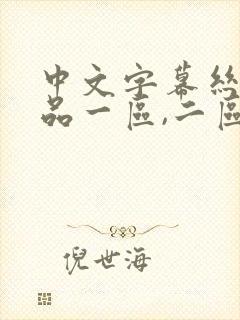 中文字幕絲
品一區,二區
倪世海